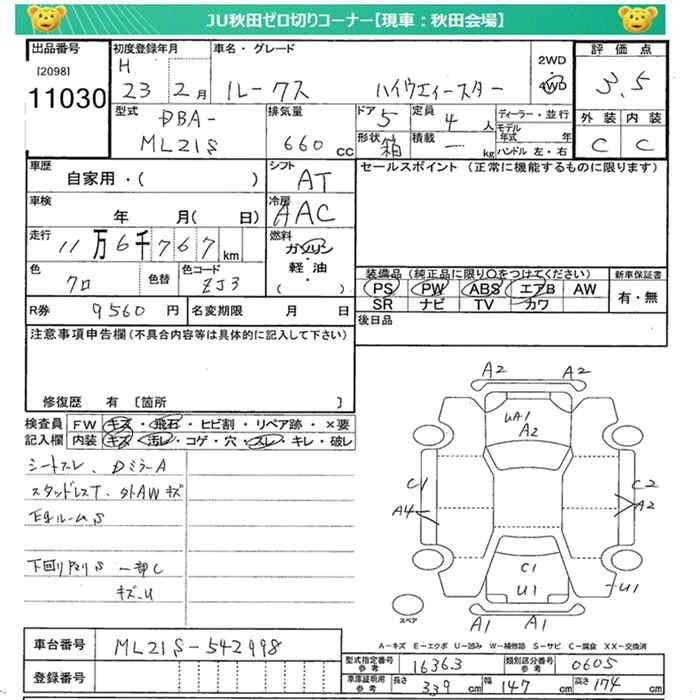 JU秋田ゼロ切りコーナー【現車：秋田会場】
出品番号
[2098]
11030
初度登録年月
H
23 2月
車名・グレード
ルークス ハイウェイスター
2WD
4WD
評価点
3.5
型式
DBA-
ML21S
排気量
660 CC
ドア
5
定員
4 人
ディーラー・並行
モデル年式 年
ハンドル 左・右
形状
箱
積載
ー kg
外装 内装
C C
車歴
自家用・( )
シフト
AT
セールスポイント (正常に機能するものに限ります)
車検
年 月( 日)
冷房
AAC
走行
11万6千767km
燃料
ガソリン
軽・油
( )
色
クロ
色替
色コード
ZJ3
装備品 (純正品に限り○をつけてください)
PS PW ABS エアB AW
SR ナビ TV カワ
新車保証書
有・無
R券 9560円
名変期限 月 日
後日品
注意事項申告欄(不具合内容等は具体的に記入して下さい)
修復歴 有 〔箇所 〕
検査員
記入欄
FW キズ・飛石・ヒビ割・リペア跡・×要
内装 キズ・汚レ・コゲ・穴・スレ・キレ・破レ
シートスレ、DミラーA
スタッドレスT・外AWキズ
下回り S 一部C
キズ-U
A2 A2
UA1
A2
C1 C2
A4 A2
C1
U1 U1
A1 A1
スペア
A－キズ E－エクボ U－凹み W－補修跡 S－サビ C－腐食 XX－交換済
車台番号
ML21S-542998
登録番号
型式指定番号
参考
16363
類別区分番号
参考
0605
車庫証明用
参考
長さ 339 cm
幅 147 cm
高さ 174 cm